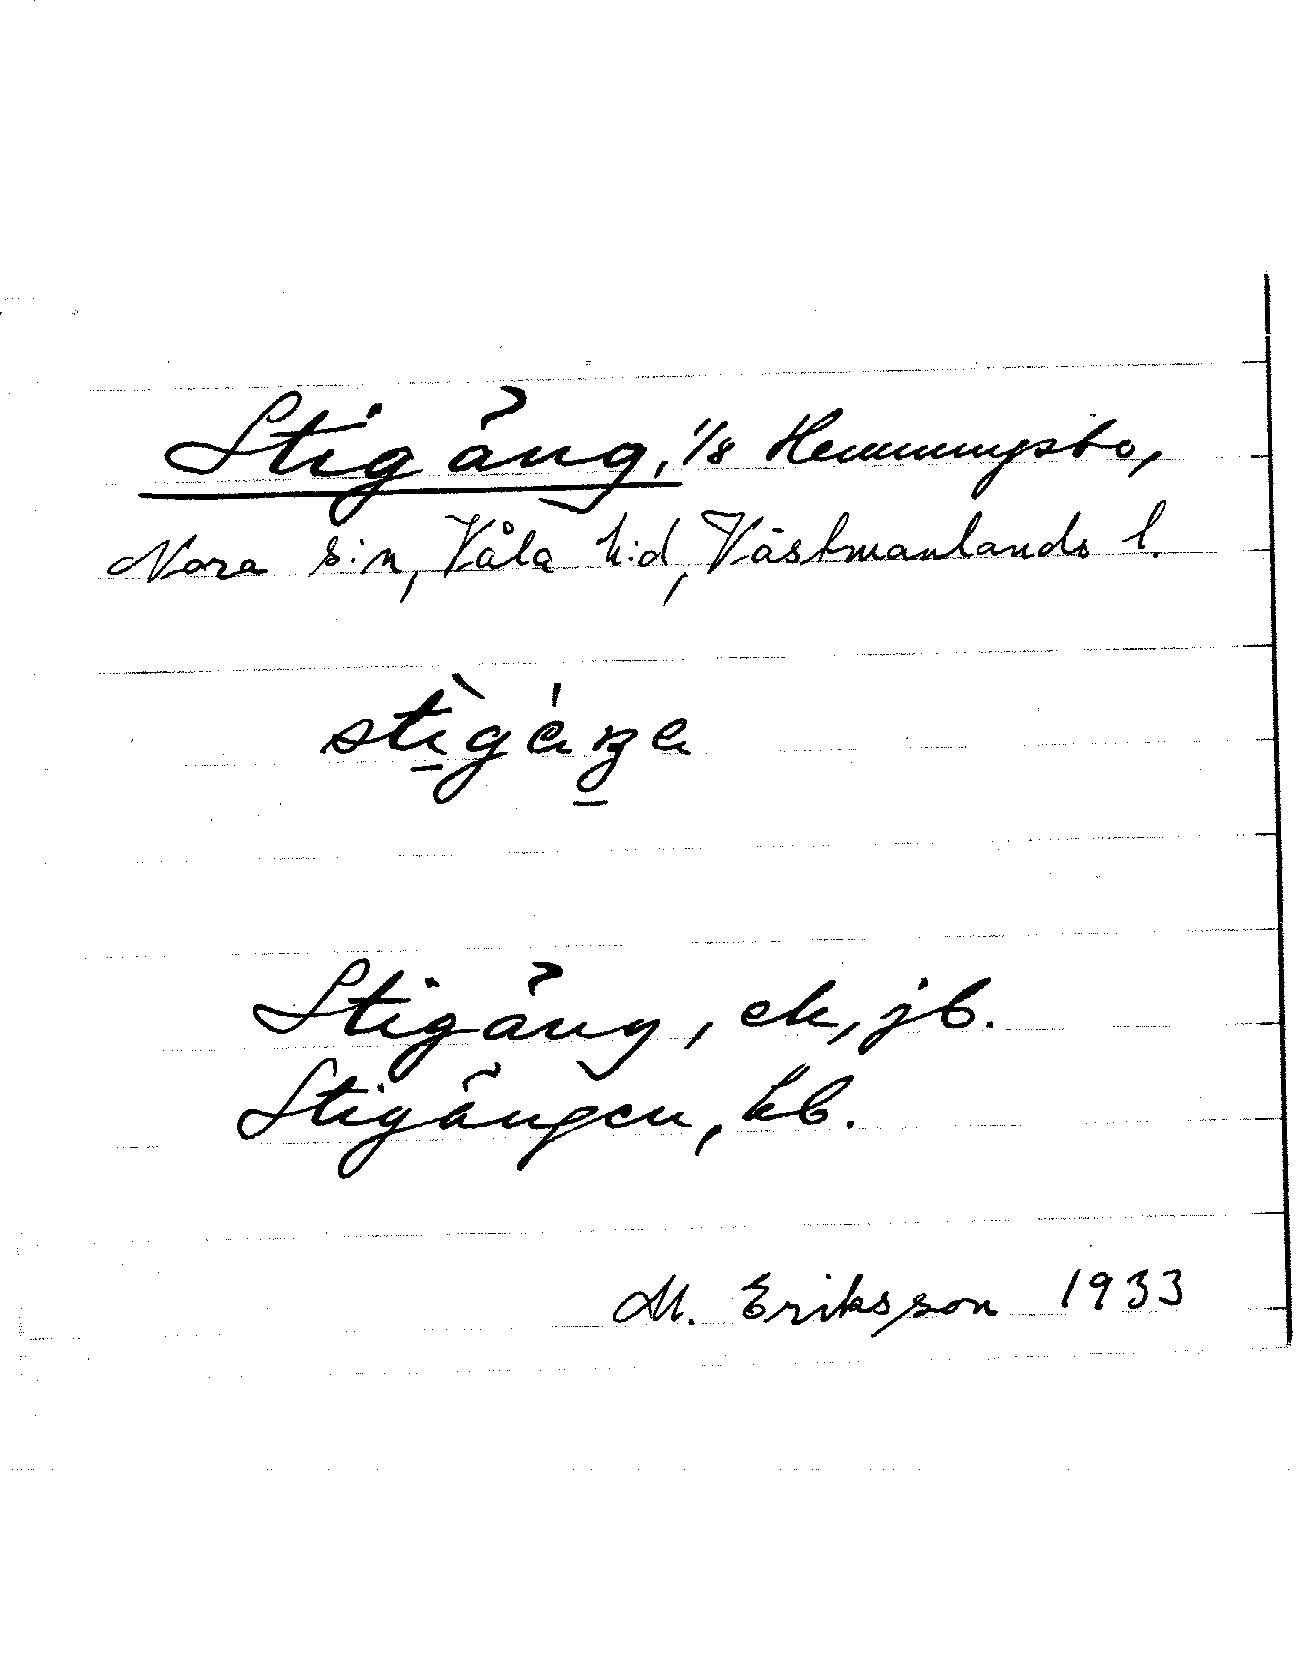 Stigång, 1/8 Hemmingsbo,
Nora s:n, Våla h:d, Västmanlands l.
Stigång, ek, jb.
Stigången, kb.
M. Eriksson 1933